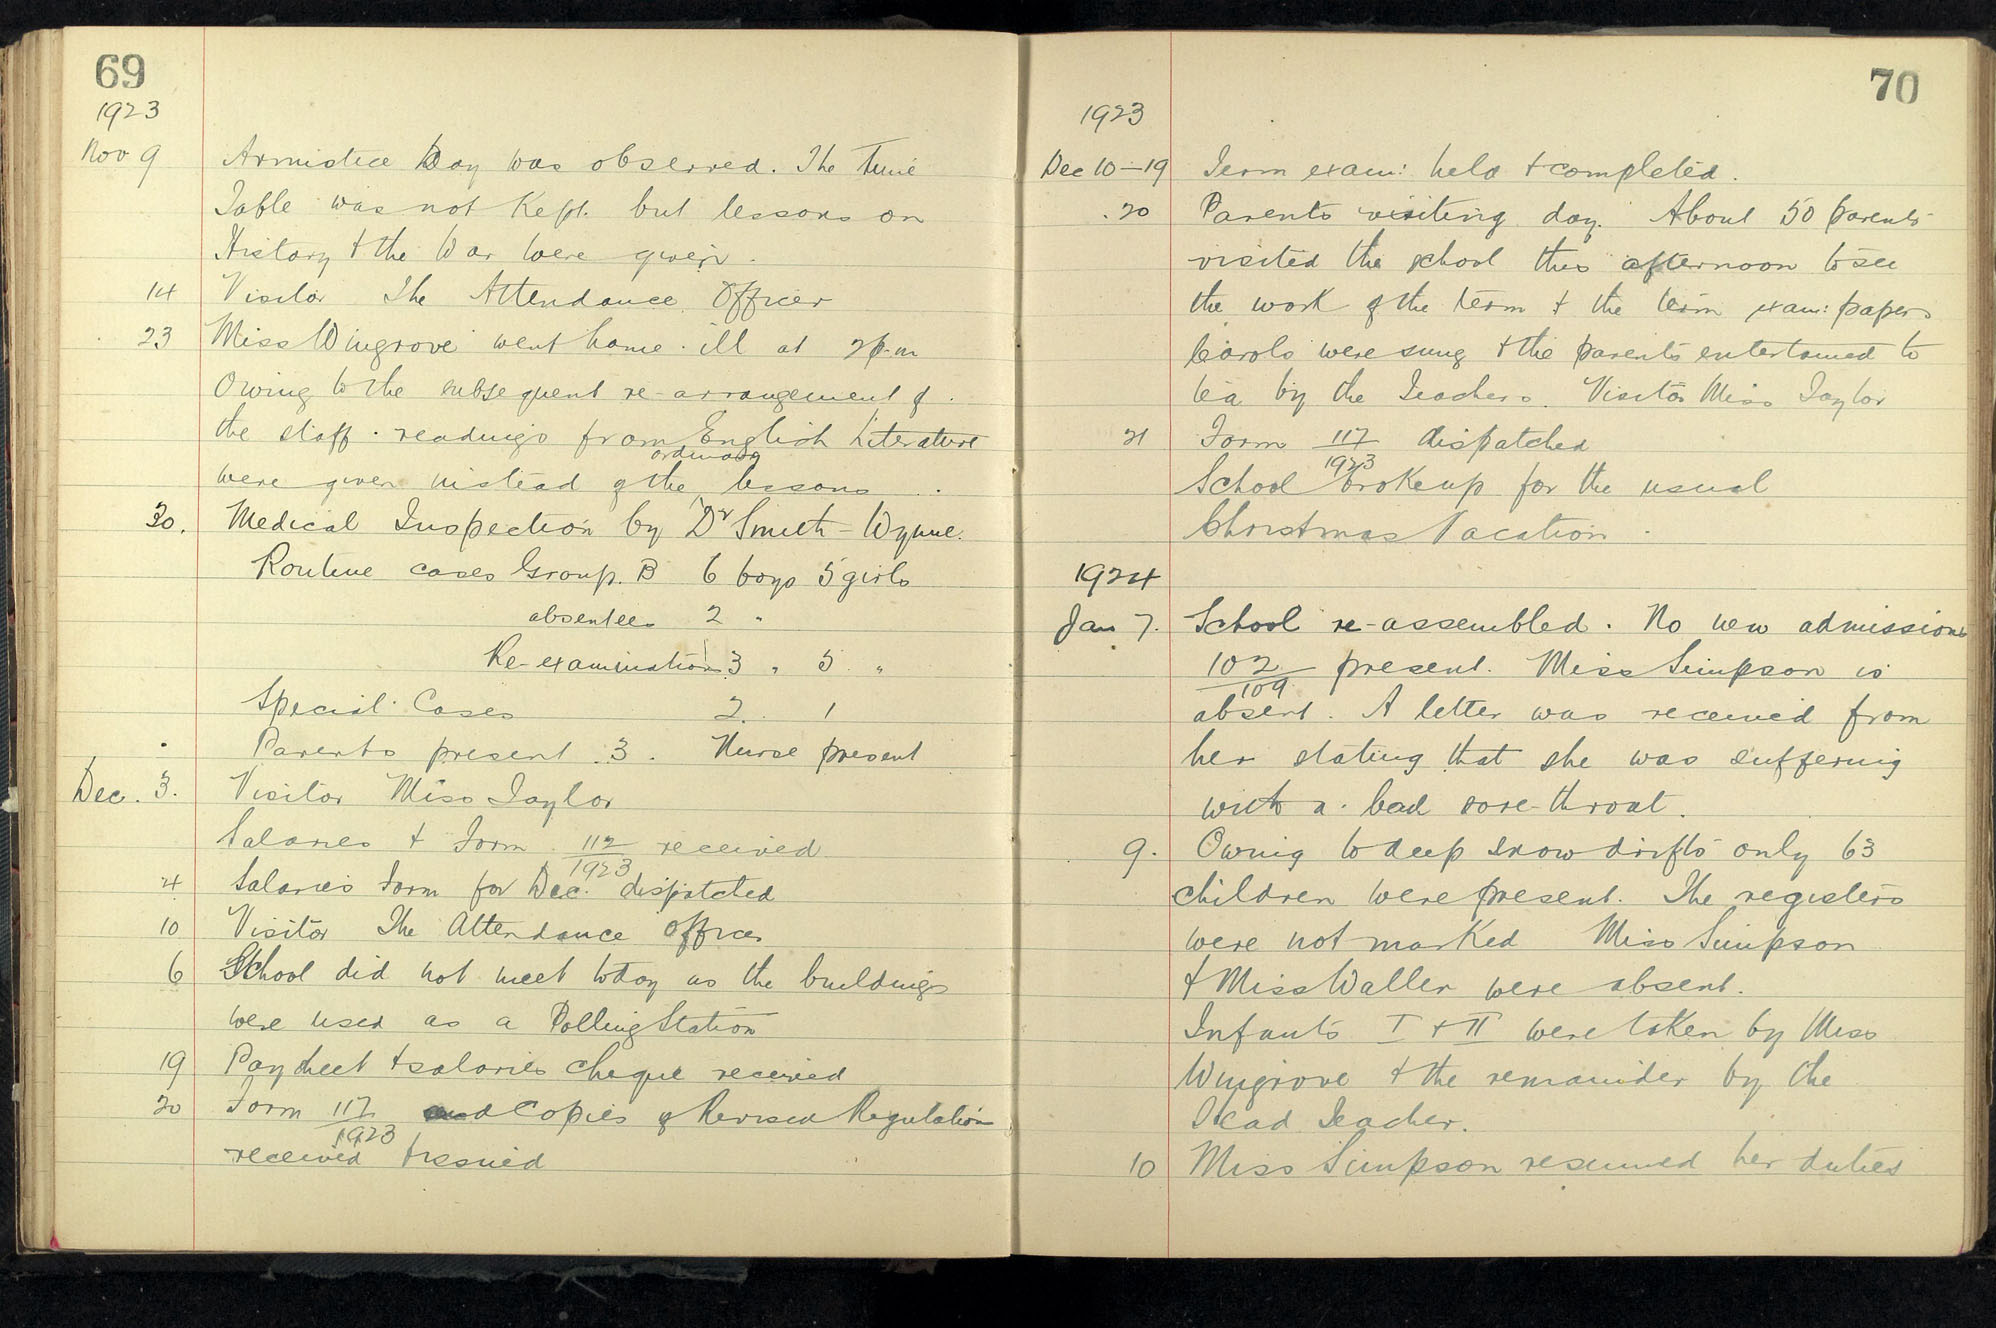 69
1923
Nov 9 Armistice Day was observed. The Time
Table was not Kept. but lessons on
History & the War were given.
14 Visitor The Attendance Officer
23 Miss Wingrove went home ill at 2 p.m
Owing to the subsequent re-arrangement of
the staff readings from English Literature
ordinary
were given instead of the lessons
30. Medical Inspection by Dr Smith-Wynne.
Routine cases Group. B 6 boys 5 girls
absentees 2 "
Re-examinations 3 " 5 "
Special Cases 2. 1
Parents present 3. Nurse present
Dec. 3. Visitor Miss Taylor
Salaries & Form 112 received
1923
4 Salaries Form for Dec. dispatched
10 Visitor The Attendance Officer
6 School did not meet today as the buildings
were used as a Polling Station
19 Paysheet & salaries cheque received
20 Form 117 and Copies of Revised Regulations
1923
received & issued
70
1923
Dec 10-19 Term exam: held & completed.
20 Parents visiting day. About 50 parents
visited the school this afternoon to see
the work of the term & the term exam: papers
Carols were sung & the parents entertained to
tea by the Teachers. Visitor Miss Taylor
21 Form 117 dispatched
1923
School broke up for the usual
Christmas Vacation.
1924
Jan 7. School re-assembled. No new admissions
102 present. Miss Simpson is
109
absent. A letter was received from
her stating that she was suffering
with a bad sore-throat.
9. Owing to deep snow drifts only 63
children were present. The registers
were not marked Miss Simpson
& Miss Waller were absent.
Infants I & II were taken by Miss
Wingrove & the remainder by the
Head Teacher.
10 Miss Simpson resumed her duties